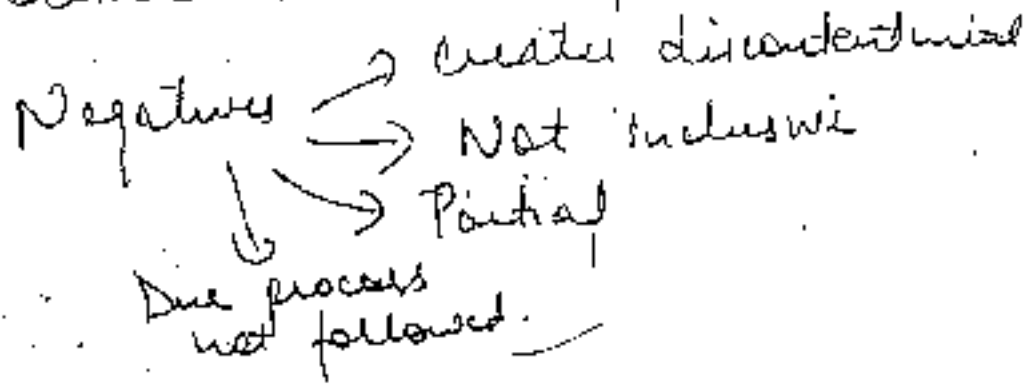 Negatives
creates discontentment
Not inclusive
Partial
Due process
not followed.